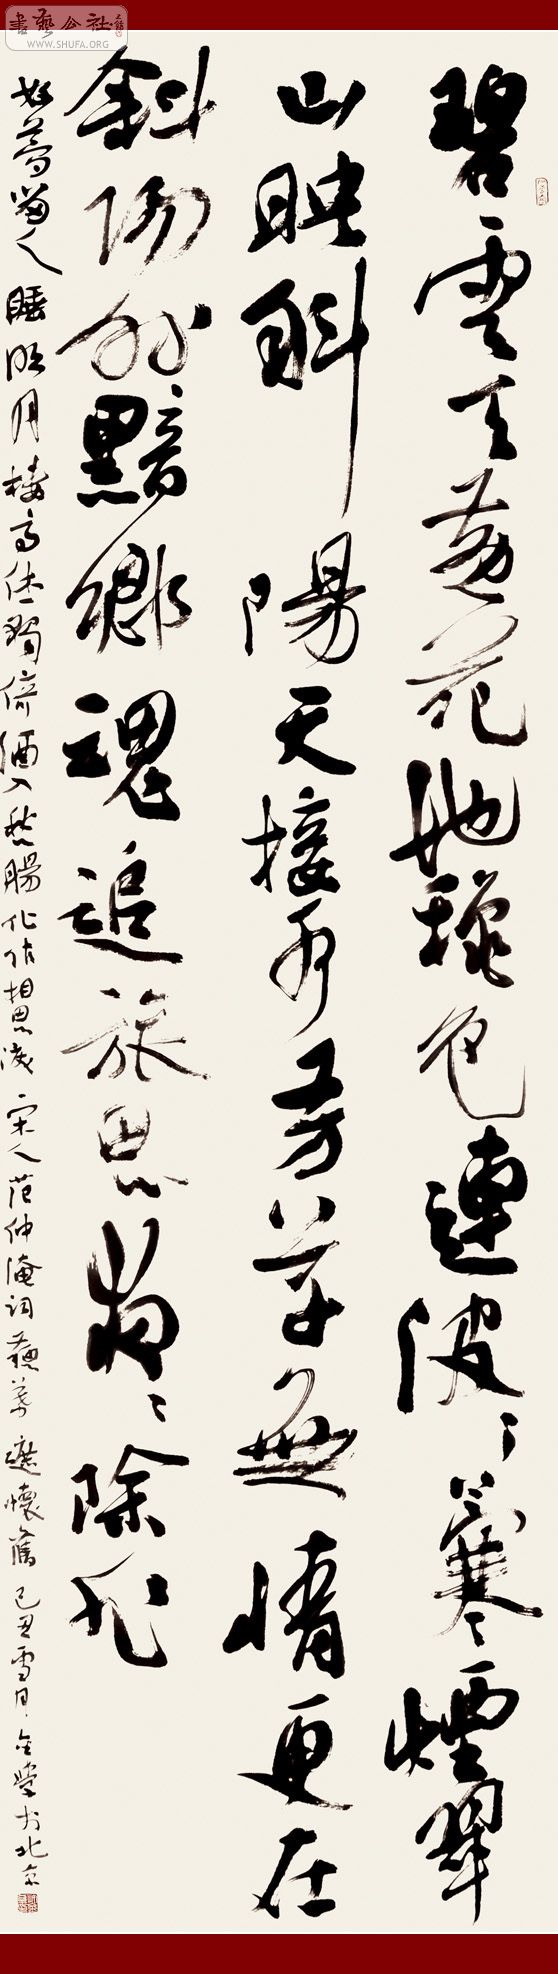 書藝公社
WWW.SHUFA.ORG
碧雲天黃花地穐色連波〻上寒煙翠
山映斜陽天接水芳草無情更在
斜陽外黯鄉魂追旅思夜〻除非
好夢留人睡明月樓高休獨倚酒入愁腸化作相思淚宋人范仲淹詞蘇幕遮懷舊己丑雪月於北京